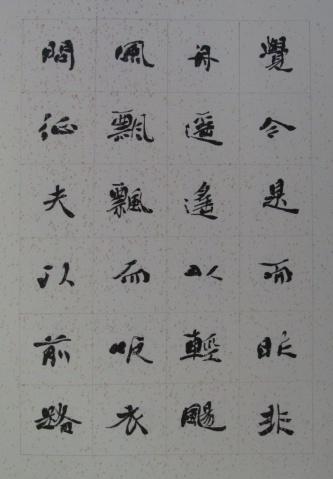 覺今是而昨非
舟遙遙以輕颺
風飄飄而吹衣
問征夫以前路